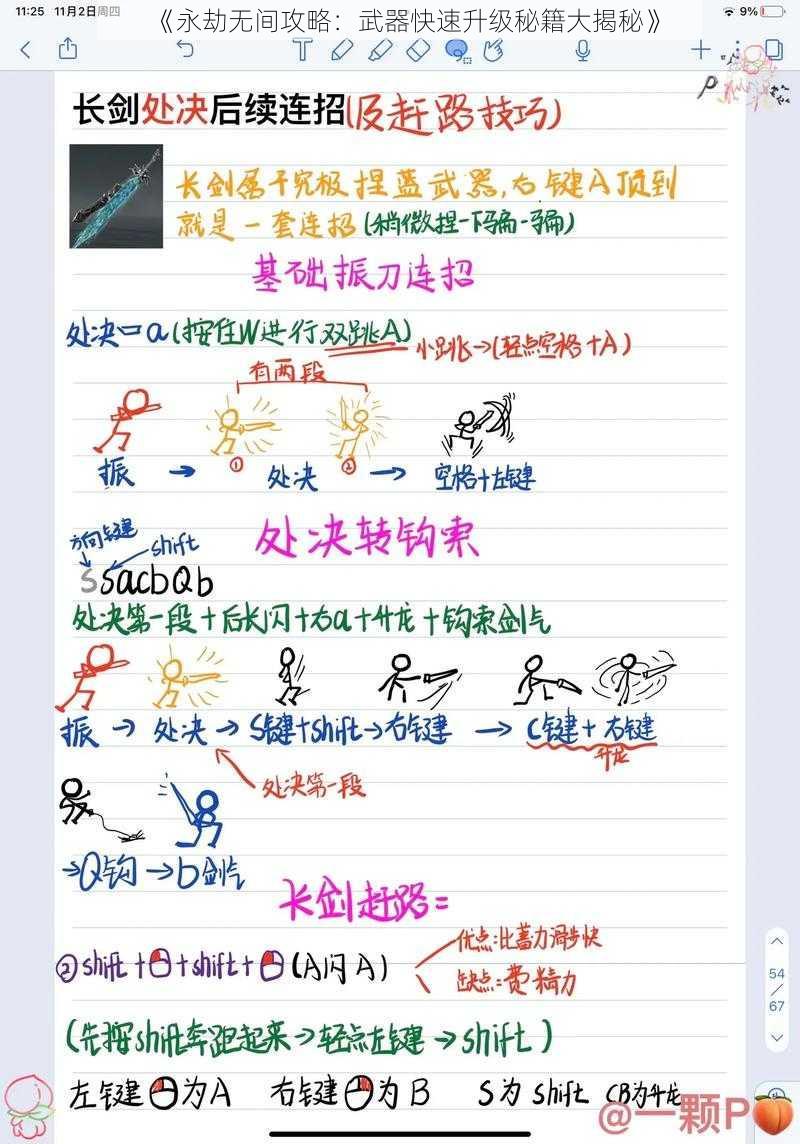 11:25 11月2日周四
9%
《永劫无间攻略：武器快速升级秘籍大揭秘》
长剑处决后续连招(及赶路技巧)
长剑属于究极捏蓝武器,右键A顶到
就是一套连招(稍微捏一下骗一骗)
基础振刀连招
处决=a(按住W进行双跳A) 小跳→(轻点空格+A)
有两段
① ②
振 → 处决 → 空格+左键
处决转钩索
方向S键 shift
SsacbQb
处决第一段+后长闪+右a+升龙+钩索剑气
振 → 处决 → S键+shift→右键 → C键+右键
升龙
处决第一段
→Q钩→b剑气
长剑赶路=
优点:比蓄力滑步快
②shift++shift+(A闪A)
缺点:费精力
(先按shift奔跑起来→轻点左键→shift)
左键为A 右键为B S为shift CB为升龙
54
/
67
@一颗P